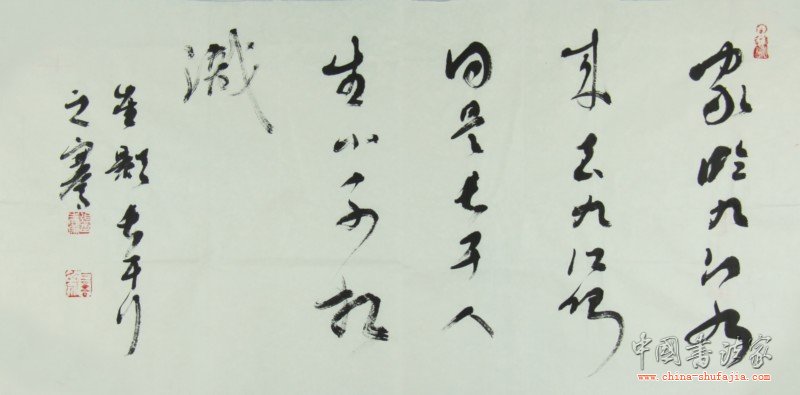 家臨九江水
来去九江側
同是長干人
生小不相
識
崔顥長干行
之
中國書法家
www.china-shufajia.com